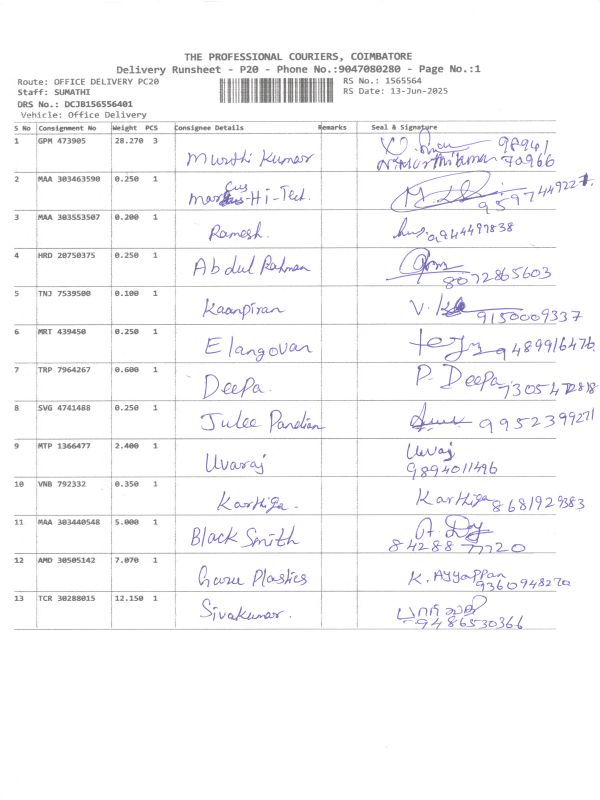 THE PROFESSIONAL COURIERS, COIMBATORE
Delivery Runsheet - P20 - Phone No.:9047080280 - Page No.:1
Route: OFFICE DELIVERY PC20 RS No.: 1565564
Staff: SUMATHI RS Date: 13-Jun-2025
DRS No.: DCJB156556401
Vehicle: Office Delivery
S No Consignment No Weight PCS Consignee Details Remarks Seal & Signature
1 GPM 473905 28.270 3 Murthi Kumar 98941
70966
2 MAA 303463590 0.250 1 Marcus-Hi-Tech.
3 MAA 303553507 0.200 1 Ramesh.
4 HRD 20750375 0.250 1 Abdul Rahman 8072865603
5 TNJ 7539500 0.100 1 Kaanpiran 9150009337
6 MRT 439450 0.250 1 Elangovan 9489916476
7 TRP 7964267 0.600 1 Deepa. P. Deepa
8 SVG 4741488 0.250 1 Julee Pandian 9952399271
9 MTP 1366477 2.400 1 Uvaraj Uvvaj
9894011496
10 VNB 792332 0.350 1 Karthiga. Karthiga 8681929383
11 MAA 303440548 5.000 1 Black Smith
84288 77720
12 AMD 30505142 7.070 1 Guru Plastics K. Ayyappan
9360948270
13 TCR 30288015 12.150 1 Sivakumar.
9486530366